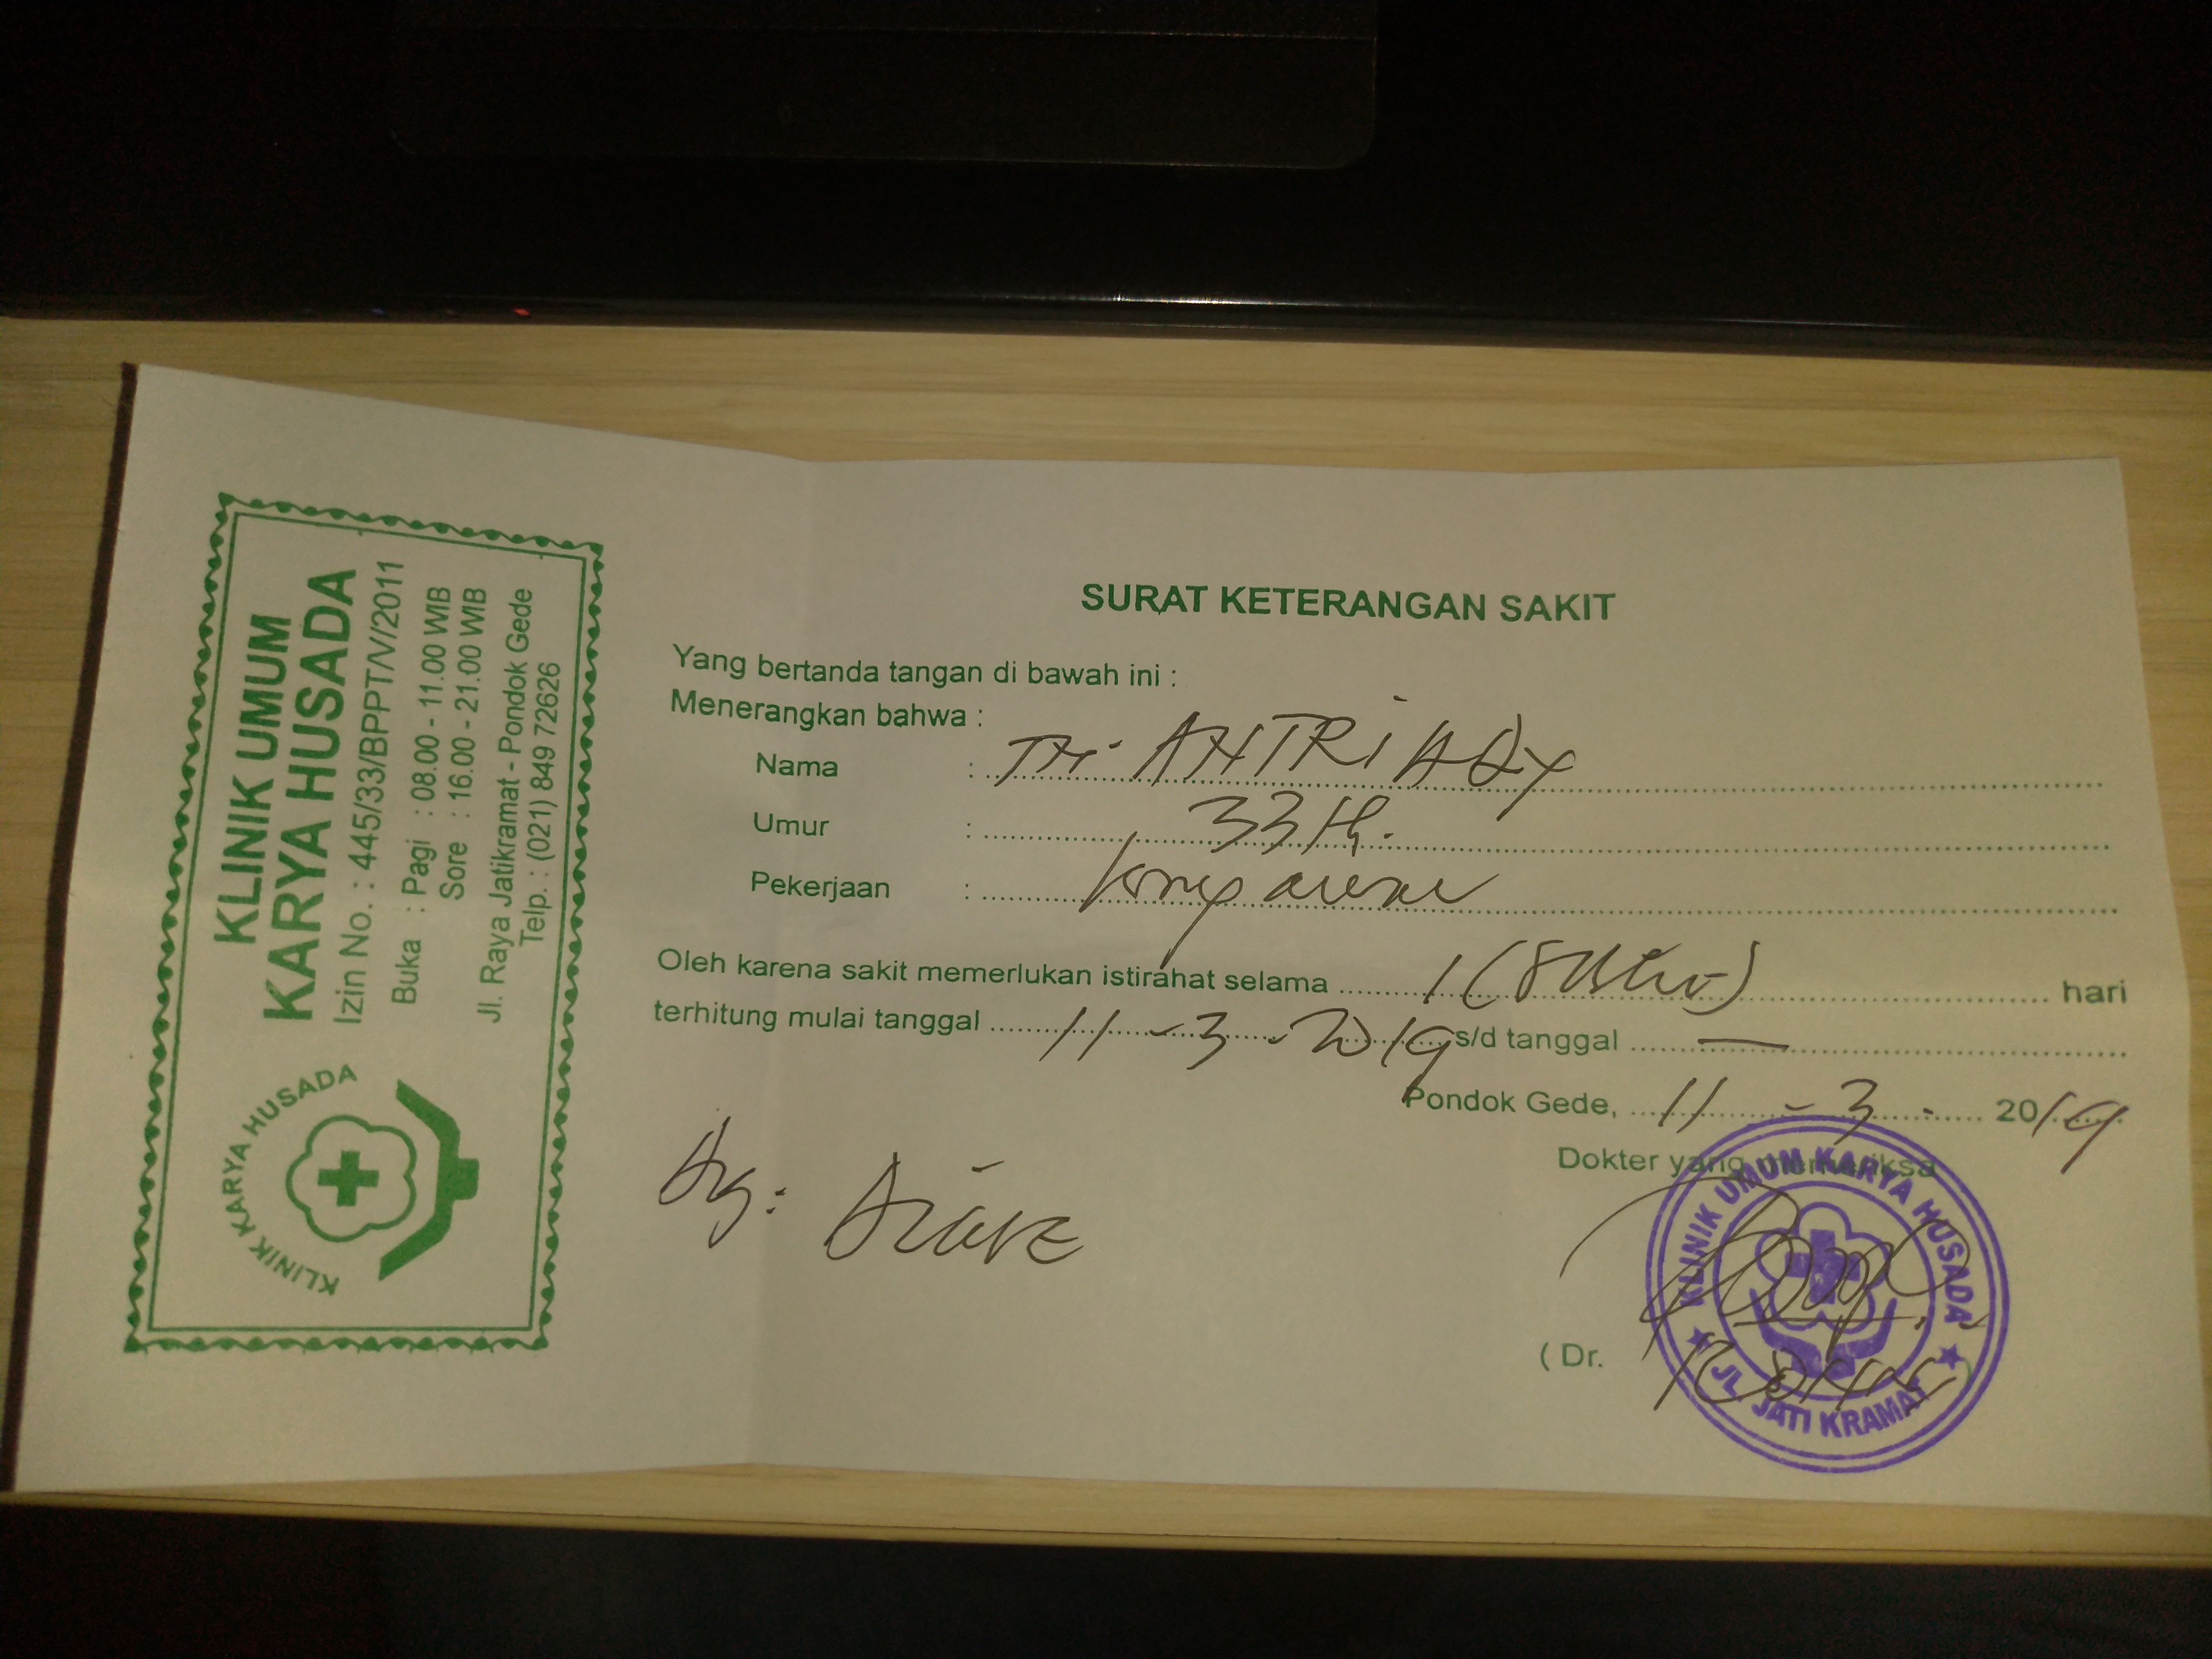 KLINIK UMUM
KARYA HUSADA
Izin No. : 445/33/BPPT/V/2011
Buka : Pagi : 08.00 - 11.00 WIB
Sore : 16.00 - 21.00 WIB
Jl. Raya Jatikramat - Pondok Gede
Telp. : (021) 849 72626
KLINIK KARYA HUSADA
SURAT KETERANGAN SAKIT
Yang bertanda tangan di bawah ini :
Menerangkan bahwa :
Nama :
Umur : 33 th.
Pekerjaan :
Oleh karena sakit memerlukan istirahat selama 1 (satu) hari
terhitung mulai tanggal 11 - 3 - 2019 s/d tanggal —
Pondok Gede, 11 - 3 - 2019
Dokter yang memeriksa
Dg: Diare
KLINIK UMUM KARYA HUSADA
JL. JATI KRAMAT
( Dr. )